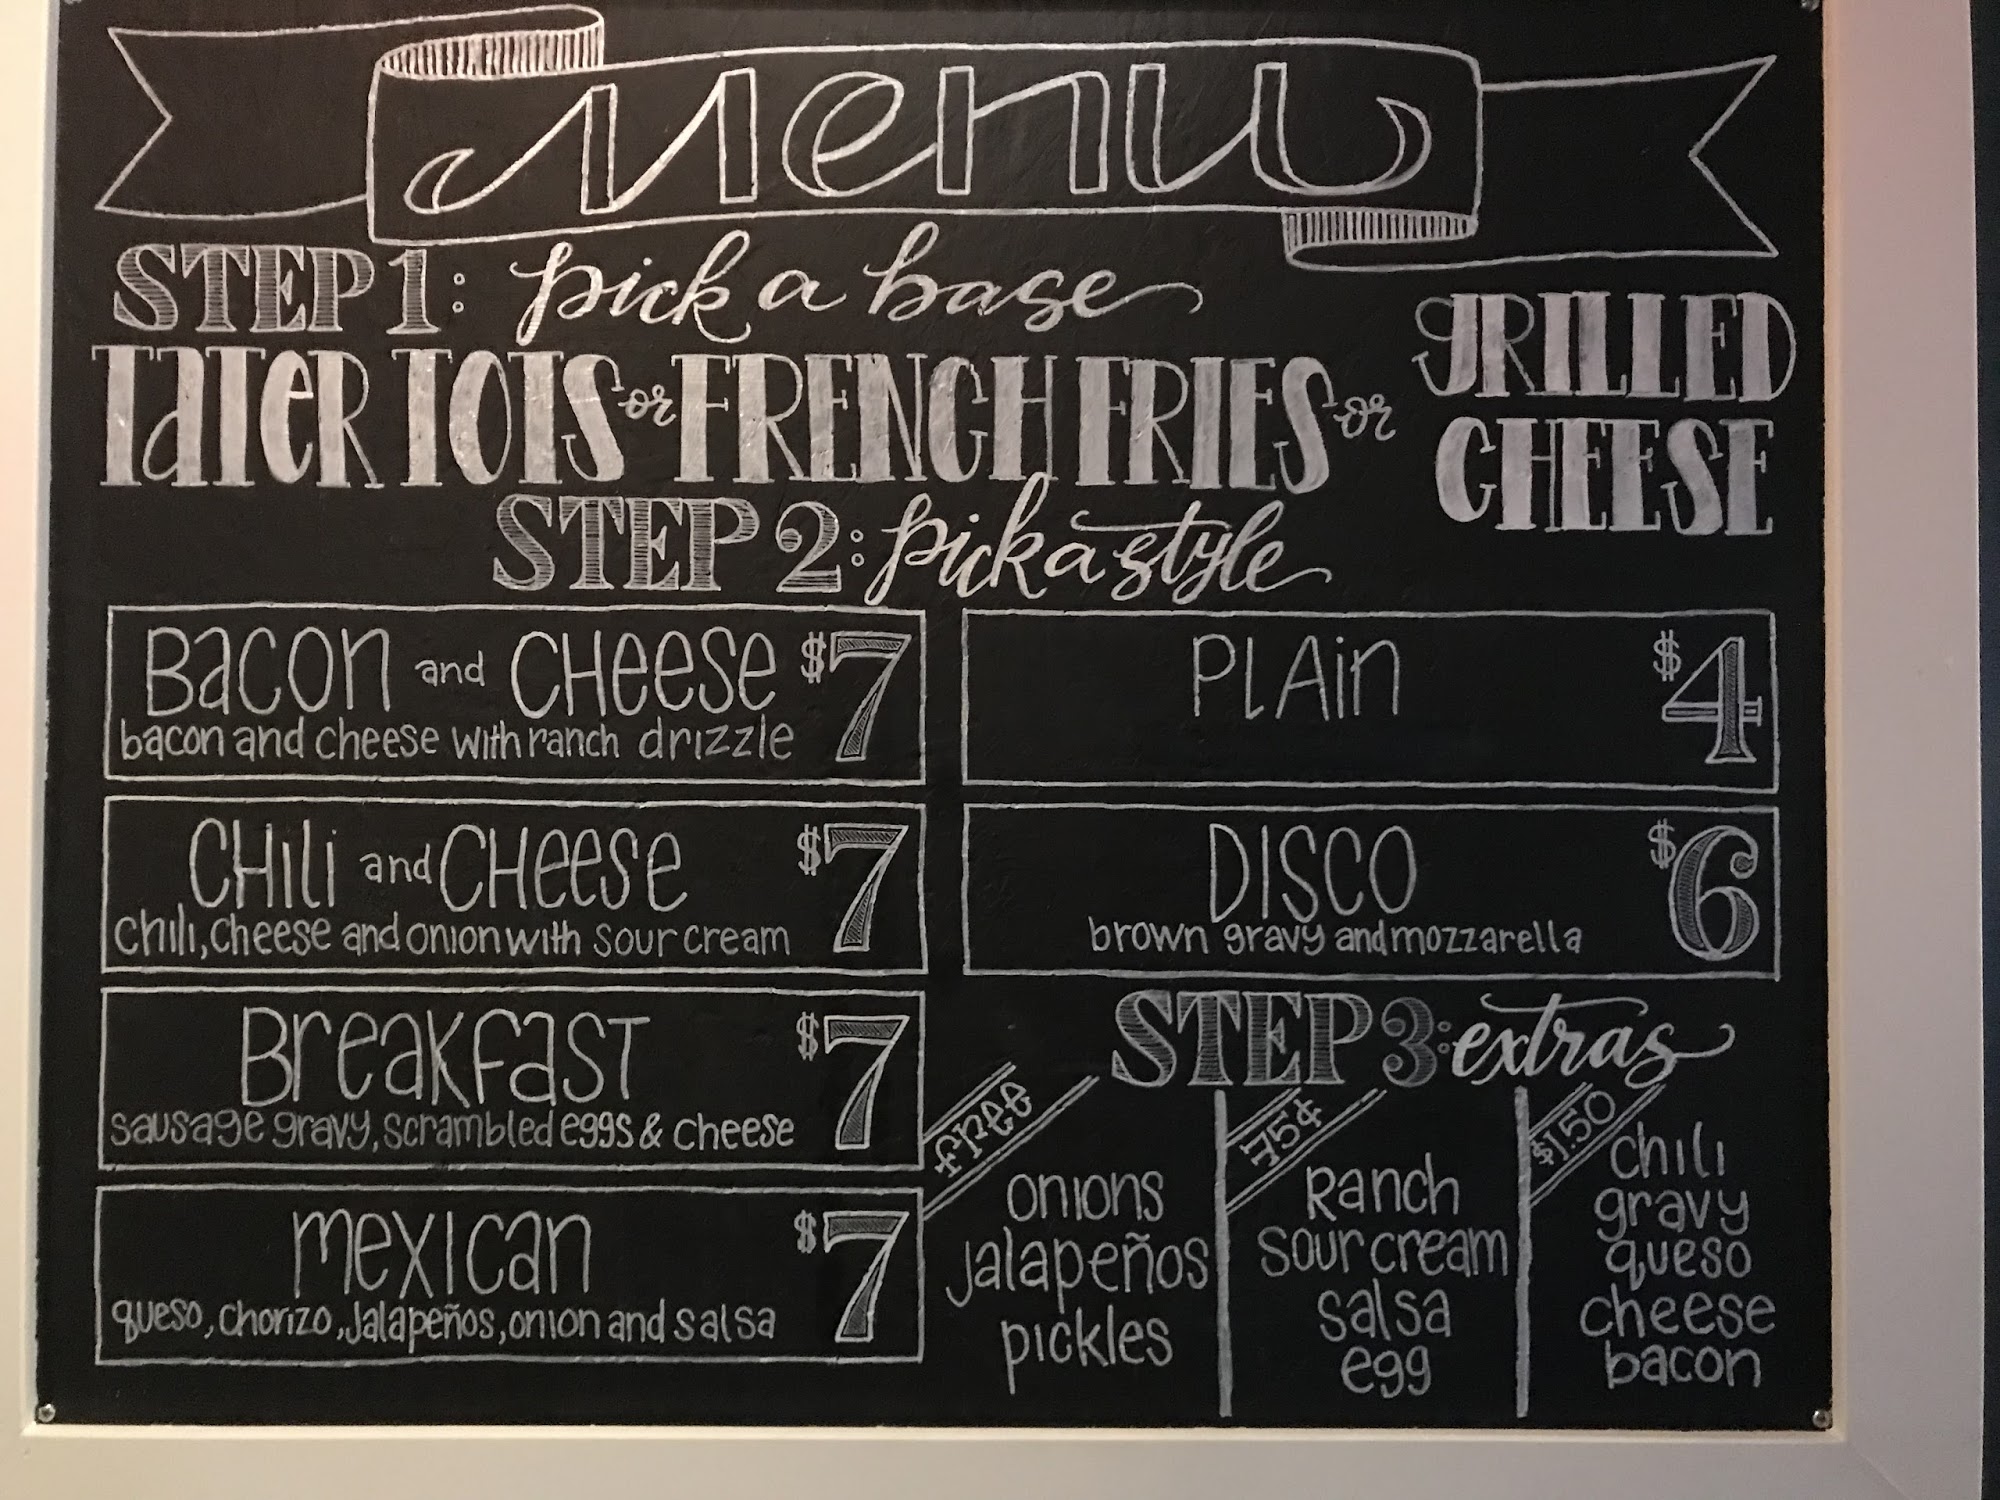 Menu
STEP 1: pick a base
TATER TOTS or FRENCH FRIES or GRILLED CHEESE
STEP 2: pick a style
BACON and CHEESE $7
bacon and cheese with ranch drizzle
CHILI and CHEESE $7
chili, cheese and onion with sour cream
BREAKFAST $7
sausage gravy, scrambled eggs & cheese
MEXICAN $7
queso, chorizo, jalapeños, onion and salsa
PLAIN $4
DISCO $6
brown gravy and mozzarella
STEP 3: extras
free
onions
jalapeños
pickles
75¢
Ranch
sour cream
salsa
egg
$1.50
chili
gravy
queso
cheese
bacon